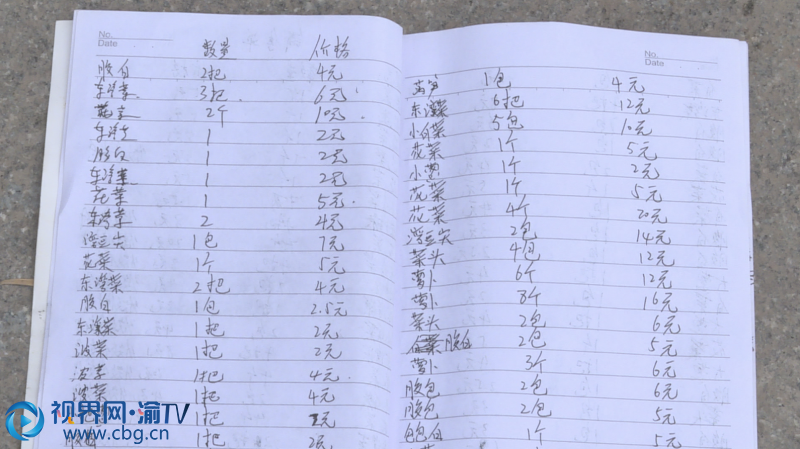 No.
Date
数量 价格
胶白 2把 4元
东汉菜 3把 6元
花菜 2个 10元
1 2元
胶白 1 2元
东汉菜 1 2元
花菜 1 5元
东汉菜 2 4元
湾豆尖 1包 7元
花菜 1个 5元
东汉菜 2把 4元
胶白 1包 2.5元
东汉菜 1把 2元
波菜 1把 2元
波菜 1把 4元
波菜 1把 4元
1把
1把 2元
No.
Date
莴笋 1包 4元
东汉菜 6把 12元
小白菜 5包 10元
花菜 1个 5元
小黄 1个 2元
花菜 1个 5元
花菜 4个 20元
湾豆尖 2包 14元
菜头 4包 12元
萝卜 6个 12元
萝卜 8个 16元
菜头 2包 6元
胶白 2包 5元
萝卜 3个 6元
胶包 2包 6元
胶包 2包 5元
包白 1个 5元
视界网·渝TV
www.cbg.cn